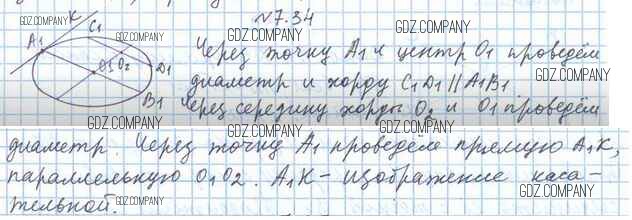 №7.34
GDZ.COMPANY
GDZ.COMPANY
GDZ.COMPANY
K
C1
A1
O1
O2
D1
B1
GDZ.COMPANY
GDZ.COMPANY
Через точку A1 и центр O1 проведём
GDZ.COMPANY
диаметр и хорду C1D1 || A1B1.
GDZ.COMPANY
Через середину хорды O2 и O1 проведём
GDZ.COMPANY
GDZ.COMPANY
диаметр. Через точку A1 проведём прямую A1K,
GDZ.COMPANY
GDZ.COMPANY
параллельную O1O2. A1K - изображение каса-
GDZ.COMPANY
тельной.
GDZ.COMPANY